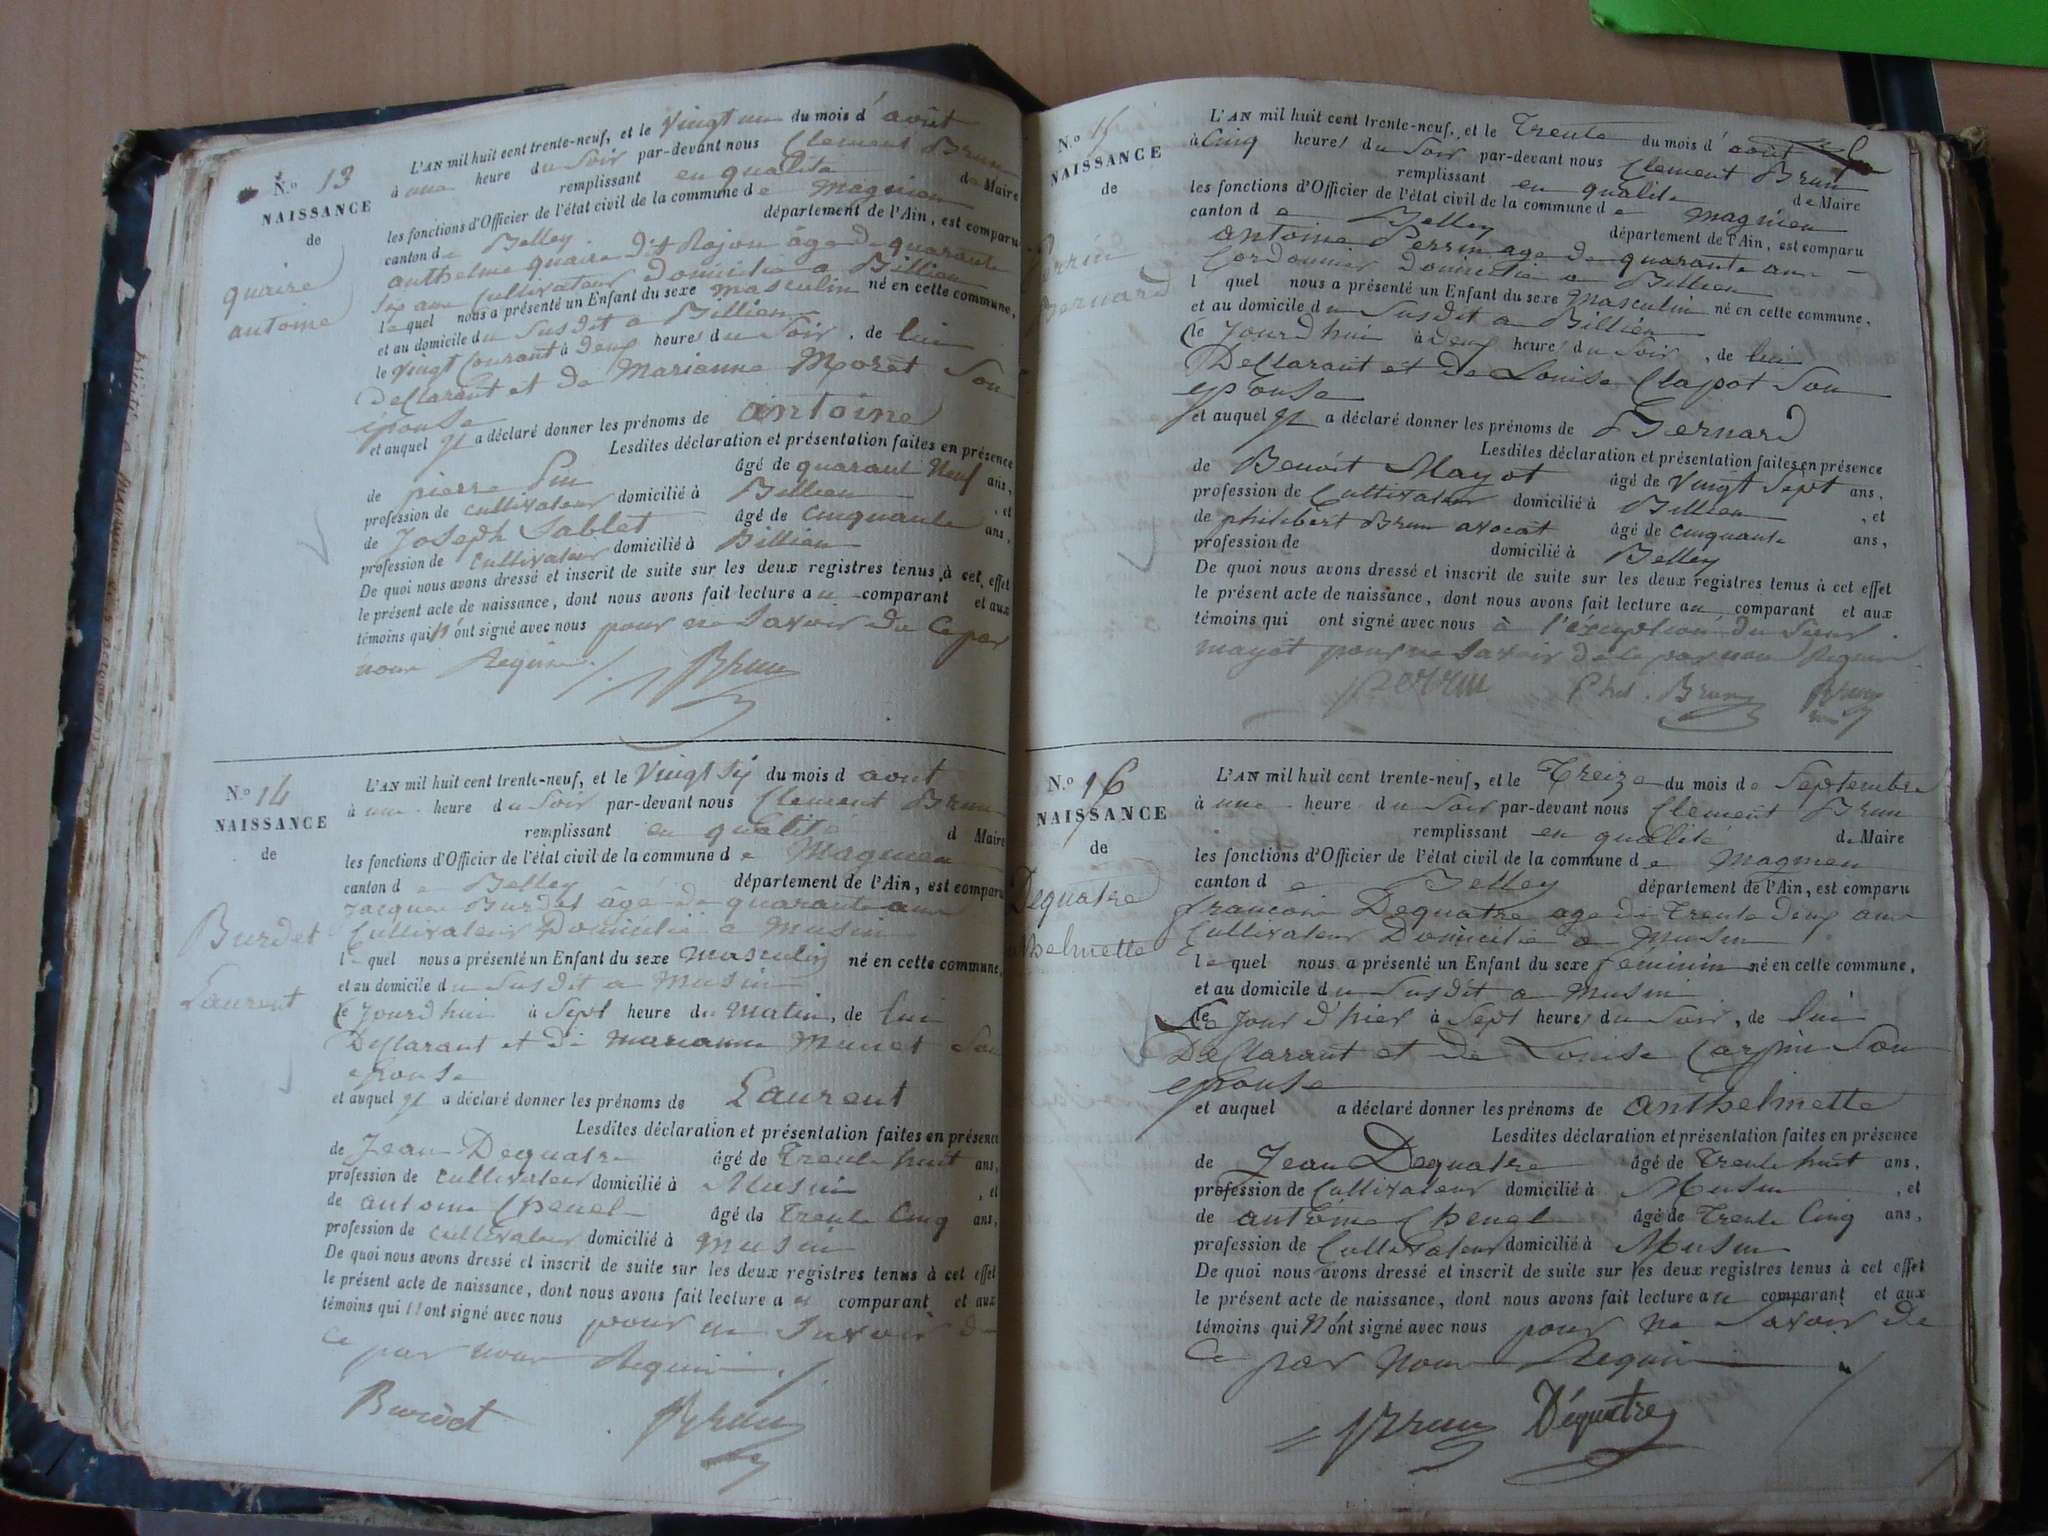 N.° 13
NAISSANCE
de
quaire
antoine
L'AN mil huit cent trente-neuf, et le Vingt un du mois d' août
à une heure du Soir par-devant nous Clement Brun
remplissant en qualité de Maire
les fonctions d'Officier de l'état civil de la commune de Magnieu
canton de Belley département de l'Ain, est comparu
anthelme quaire dit Rojon âgé de quarante
six ans Cultivateur Domicilié a Billieu
lequel nous a présenté un Enfant du sexe masculin né en cette commune,
et au domicile du Susdit a Billieu
le vingt Courant à deux heures du Soir, de lui
Declarant et de Marianne Moret Son
épouse
et auquel il a déclaré donner les prénoms de antoine
Lesdites déclaration et présentation faites en présence
de pierre âgé de quarante Neuf ans,
profession de cultivateur domicilié à Billieu, et
de Joseph Sablet âgé de cinquante ans,
profession de cultivateur domicilié à Billieu
De quoi nous avons dressé et inscrit de suite sur les deux registres tenus à cet effet
le présent acte de naissance, dont nous avons fait lecture au comparant et aux
témoins qui n'ont signé avec nous pour ne Savoir de Ce par
nous Requis
Brun
N.° 14
NAISSANCE
de
Burdet
Laurent
L'AN mil huit cent trente-neuf, et le Vingt Six du mois d août
à une heure du Soir par-devant nous Clement Brun
remplissant en qualité d Maire
les fonctions d'Officier de l'état civil de la commune de Magnieu
canton de Belley département de l'Ain, est comparu
Jacques Burdet âgé de quarante ans
Cultivateur Domicilié a Musin
lequel nous a présenté un Enfant du sexe Masculin né en cette commune,
et au domicile du Susdit a Musin
le Jourd'hui à Sept heure du Matin, de lui
Declarant et de marianne Munet Son
epouse
et auquel il a déclaré donner les prénoms de Laurent
Lesdites déclaration et présentation faites en présence
de Jean Dequatre âgé de Trente huit ans,
profession de cultivateur domicilié à Musin, et
de antoine Chenel âgé de Trente Cinq ans,
profession de cultivateur domicilié à Musin
De quoi nous avons dressé et inscrit de suite sur les deux registres tenus à cet effet
le présent acte de naissance, dont nous avons fait lecture au comparant et aux
témoins qui n'ont signé avec nous pour ne Savoir de
Ce par nous Requis
Burdet Brun
N.° 15
NAISSANCE
de
Perrin
Bernard
L'AN mil huit cent trente-neuf, et le Trente du mois d' août
à Cinq heures du Soir par-devant nous Clement Brun
remplissant en qualité de Maire
les fonctions d'Officier de l'état civil de la commune de Magnieu
canton de Belley département de l'Ain, est comparu
antoine Perrin age de quarante ans
Cordonnier domicilié a Billieu
l quel nous a présenté un Enfant du sexe Masculin né en cette commune,
et au domicile du Susdit a Billieu
le Jourd'hui à deux heures du Soir, de lui
Declarant et de Louise Clapot Son
epouse
et auquel il a déclaré donner les prénoms de Bernard
Lesdites déclaration et présentation faites en présence
de Benoit Mayot âgé de Vingt Sept ans,
profession de Cultivateur domicilié à Billieu, et
de philibert Brun avocat âgé de cinquante ans,
profession de domicilié à Belley
De quoi nous avons dressé et inscrit de suite sur les deux registres tenus à cet effet
le présent acte de naissance, dont nous avons fait lecture au comparant et aux
témoins qui ont signé avec nous à l'exception du Sieur
mayot pour ne Savoir de Ce par nous Requis
perrin Phil. Brun Brun
N.° 16
NAISSANCE
de
Dequatre
anthelmette
L'AN mil huit cent trente-neuf, et le Treize du mois de Septembre
à une heure du Soir par-devant nous Clement Brun
remplissant en qualité de Maire
les fonctions d'Officier de l'état civil de la commune de Magnieu
canton de Belley département de l'Ain, est comparu
francois Dequatre age de Trente deux ans
Cultivateur Domicilié a Musin
lequel nous a présenté un Enfant du sexe feminin né en cette commune,
et au domicile du Susdit a Musin
le Jour d'hier à Sept heures du Soir, de lui
Declarant et de Louise Carpin Son
epouse
et auquel a déclaré donner les prénoms de anthelmette
Lesdites déclaration et présentation faites en présence
de Jean Dequatre âgé de Trente huit ans,
profession de Cultivateur domicilié à Musin, et
de antoine Chenel âgé de Trente Cinq ans,
profession de Cultivateur domicilié à Musin
De quoi nous avons dressé et inscrit de suite sur les deux registres tenus à cet effet
le présent acte de naissance, dont nous avons fait lecture au comparant et aux
témoins qui N'ont signé avec nous pour ne Savoir de
Ce par nous Requis
Brun Déquatre